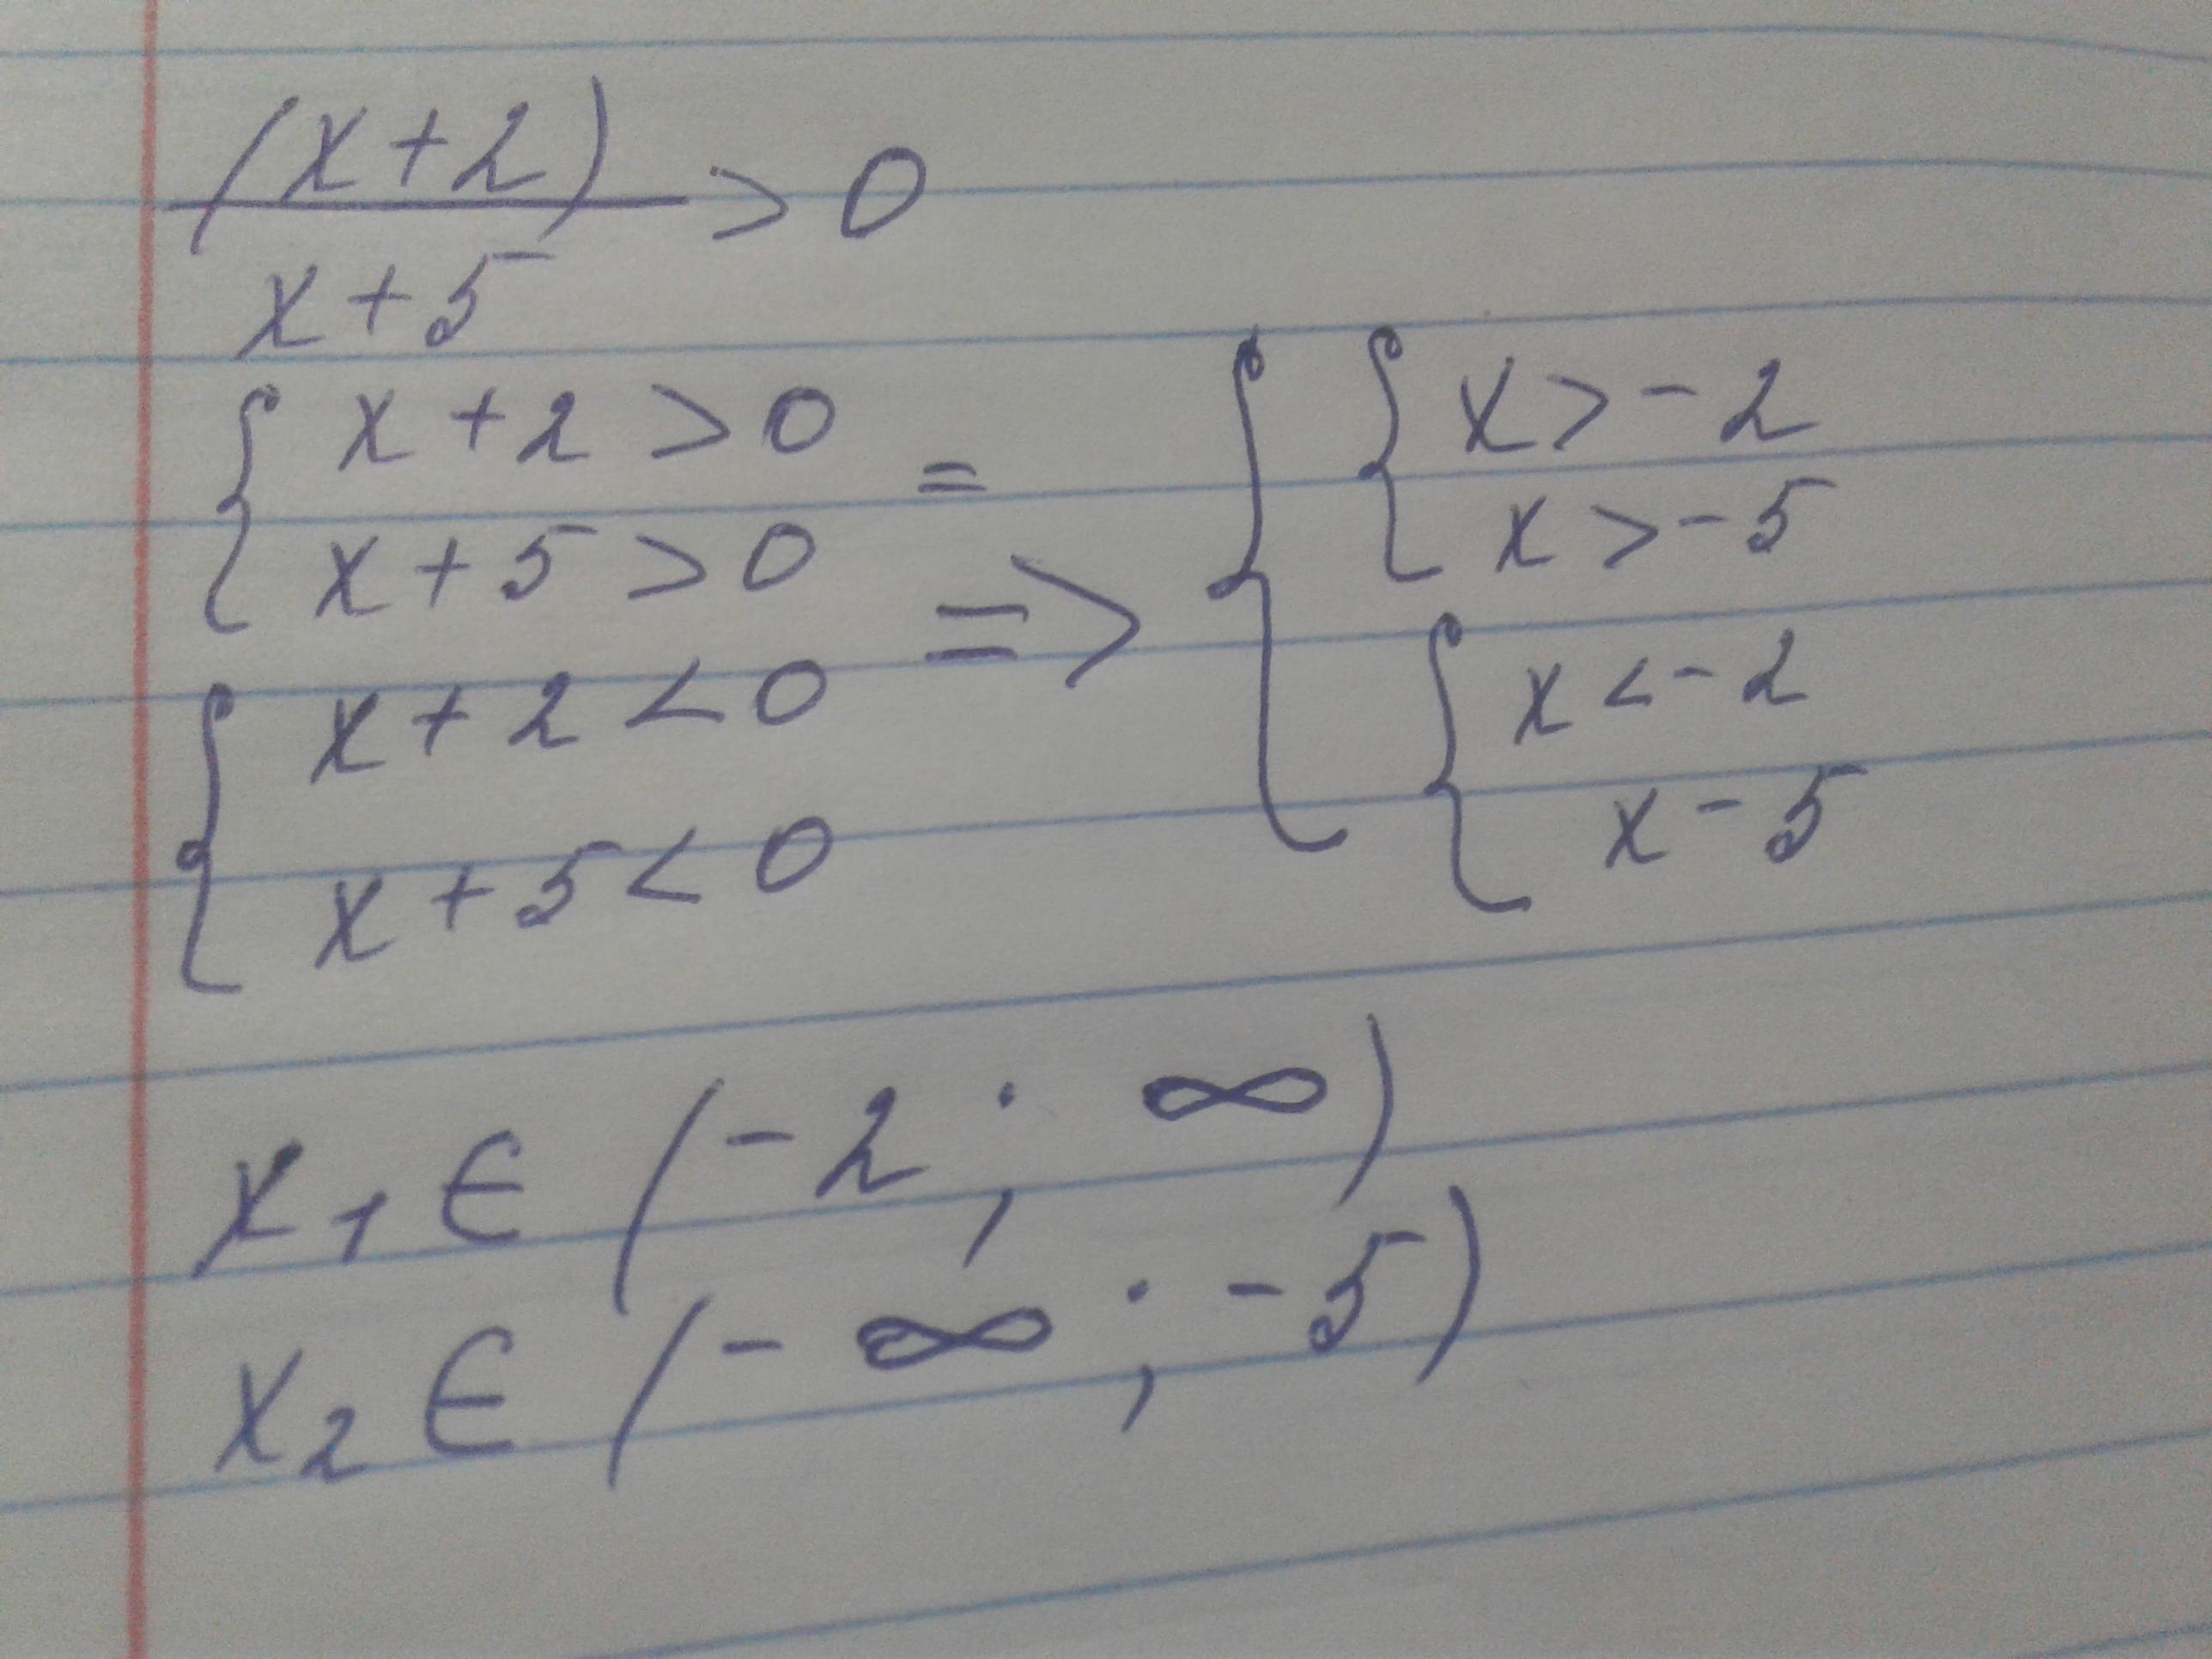 (x+2)
x+5
> 0
{ x+2 > 0
x+5 > 0
=
=>
{ x+2 < 0
x+5 < 0
{ { x > -2
x > -5
{ x < -2
x - 5
x₁ ∈ (-2; ∞)
x₂ ∈ (-∞; -5)